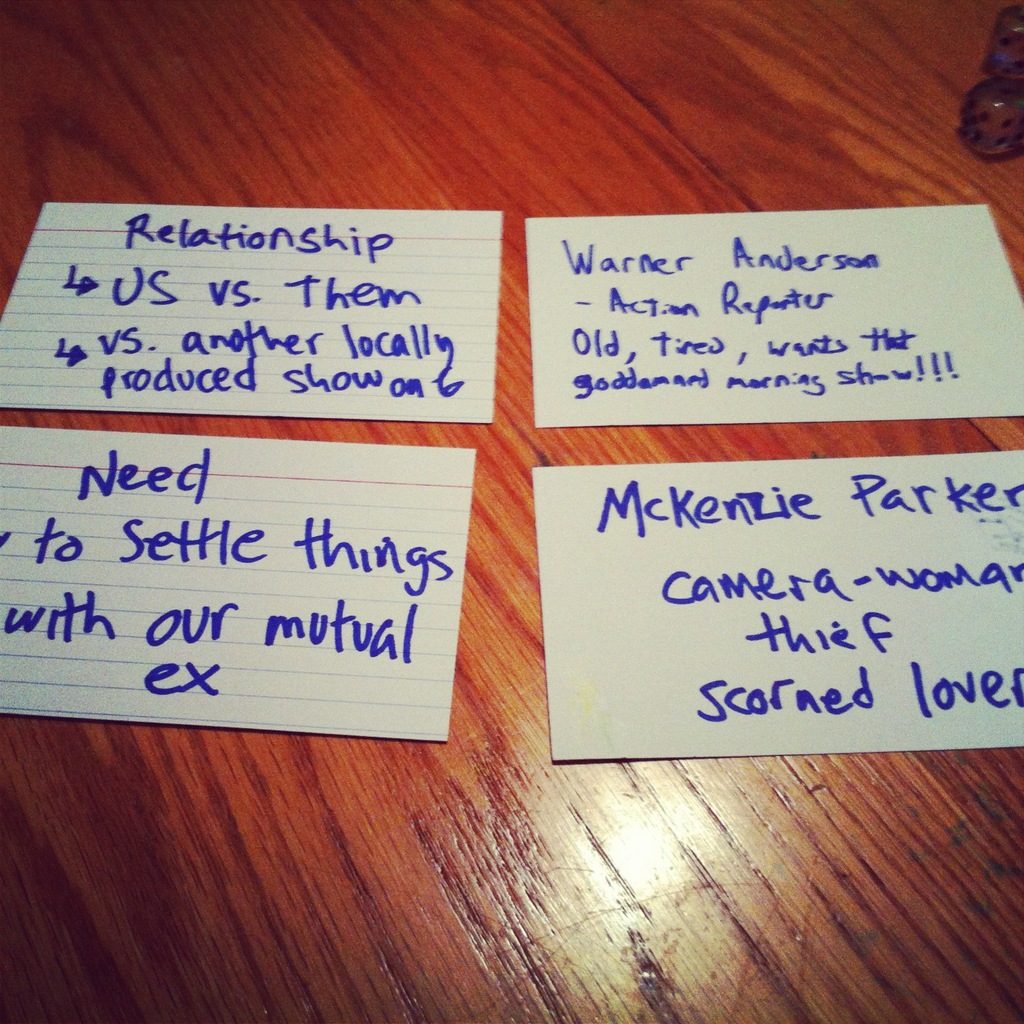 Relationship
↳ US vs. Them
↳ vs. another locally
produced show on 6
Warner Anderson
- Action Reporter
Old, tired, wants that
goddamand morning show!!!
Need
to settle things
with our mutual
ex
McKenzie Parker
camera-woman
thief
scorned lover